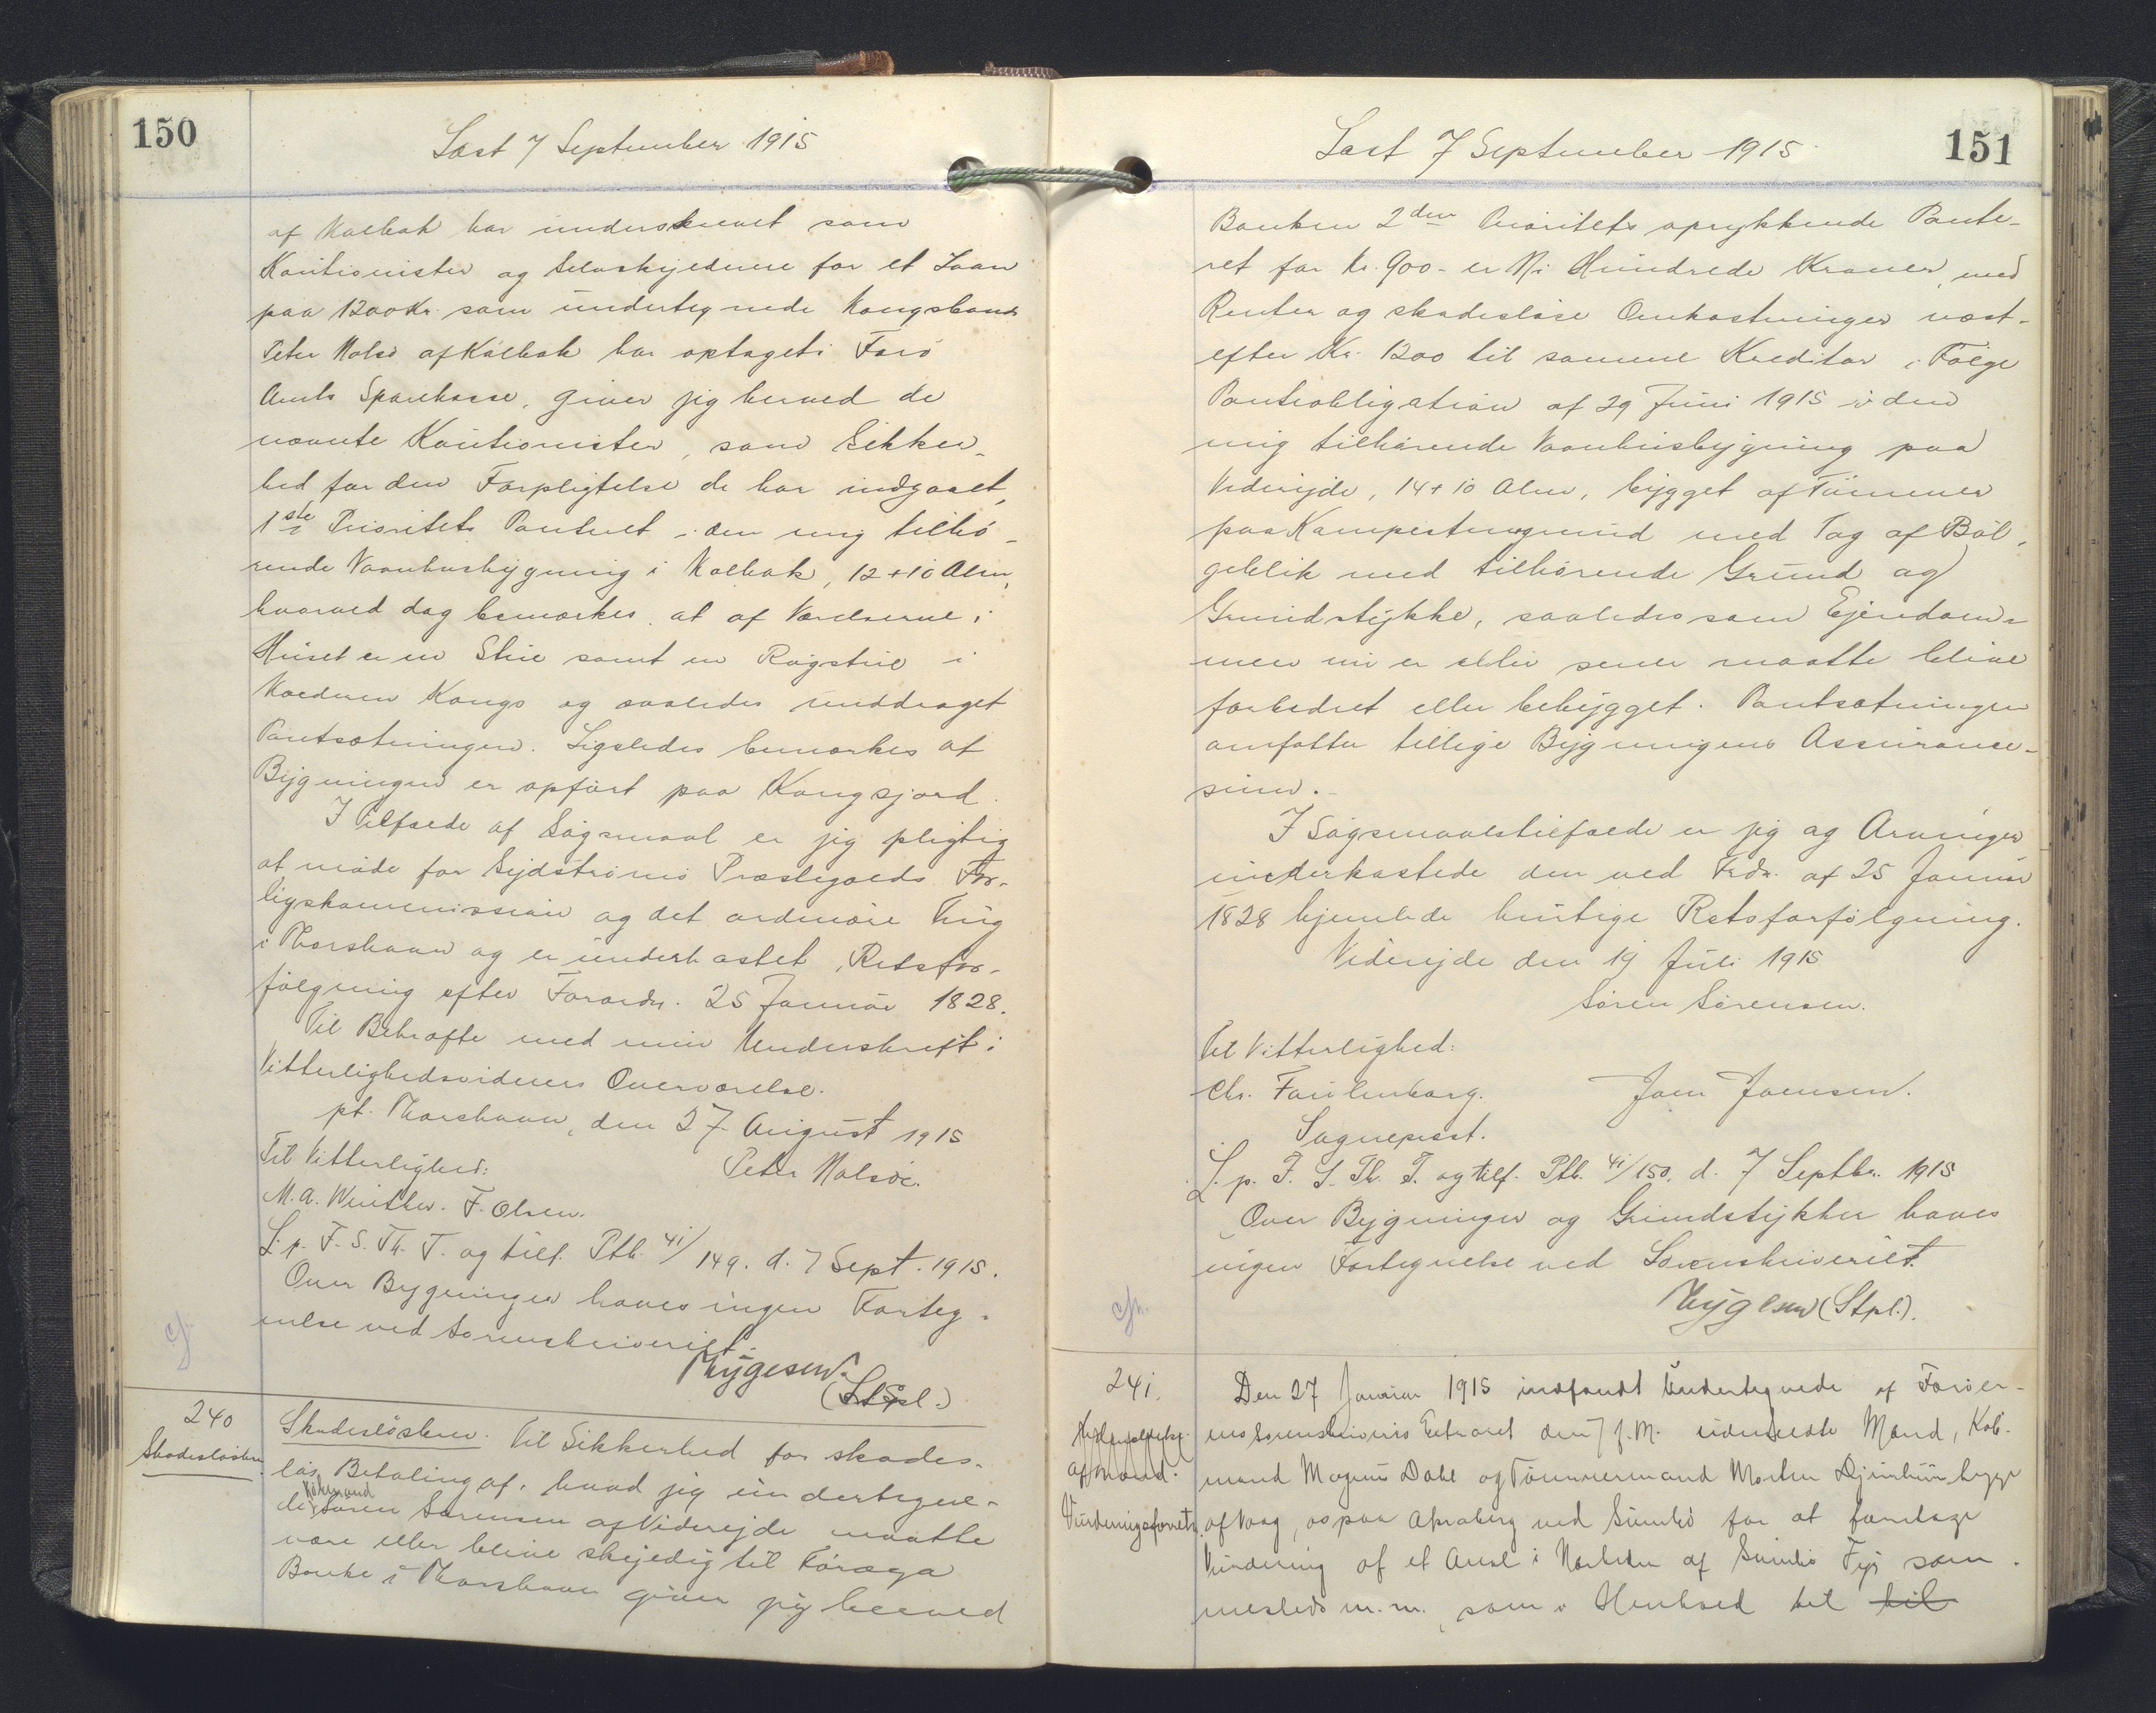 150
Læst 7 September 1915
af Kalbak har underskrevet som
Kautionister og Selvskyldnere for et Laan
paa 1200 Kr. som undertegnede Kongsbonde
Peter Nolsø af Kalbak har optaget i Færø
Amts Sparekasse, giver jeg herved de
nævnte Kautionister, som Sikker-
hed for den Forpligtelse de har indgaaet,
1ste Prioritets Panteret i den mig tilhø-
rende Vaanhusbygning i Kalbak, 12 + 10 Alen,
hvorved dog bemærkes at af Værelserne i
Huset er en Stue samt en Røgstue i
Kælderen Kongs og saaledes unddraget
Pantsætningen. Ligeledes bemærkes at
Bygningen er opført paa Kongsjord.
I Tilfælde af Søgsmaal er jeg pligtig
at møde for Sydstrømø Præstegjælds For-
ligskommission og det ordinære Ting
i Thorshavn og er underkastet Retsfor-
følgning efter Forordn. 25 Januar 1828.
Til Bekræfte med min Underskrift i
Vitterlighedsvidners Overværelse.
pt. Thorshavn, den 27 August 1915
Til Vitterlighed: Peter Nolsøe.
M. A. Winther. F. Olsen.
L. p. F. S. Th. T. og tilf. Ptb. 41/149. d. 7 Sept. 1915.
Over Bygninger haves ingen Forteg-
nelse ved Sorenskriveriet.
Thygesen.
(Stpl.)
240
Skadesløsbrev
Skadesløsbrev. Til Sikkerhed for skades-
løs Betaling af, hvad jeg undertegne-
de Købmand Søren Sørensen af Viderejde maatte
være eller blive skyldig til Føroya
Banke i Thorshavn giver jeg herved
151
Læst 7 September 1915
Banken 2den Prioritets oprykkende Pante-
ret for Kr. 900 - er Ni Hundrede Kroner, med
Renter og skadesløse Omkostninger næst-
efter Kr. 1200 til samme Kreditor i Følge
Panteobligation af 29 Juni 1915 i den
mig tilhørende Vaanhusbygning paa
Viderejde, 14 + 10 Alen, bygget af Tømmer
paa Kampestensgrund med Tag af Bøl-
geblik med tilhørende Grund og
Grundstykke, saaledes som Ejendom-
men nu er eller senere maatte blive
forbedret eller bebygget. Pantsætningen
omfatter tillige Bygningens Assurance-
sum.
I Søgsmaalstilfælde er jeg og Arvinger
underkastede den ved Frdn. af 25 Januar
1828 hjemlede hurtige Retsforfølgning.
Viderejde den 19 Juli 1915
Søren Sørensen.
Til Vitterlighed:
Chr. Faulenborg. Joen Joensen.
Sognepræst.
L. p. F. S. Th. T. og tilf. Ptb. 41/150. d. 7 Septbr. 1915
Over Bygninger og Grundstykker haves
ingen Fortegnelse ved Sorenskriveriet.
Thygesen (Stpl.).
241.
af Mænd.
Vurderingsforretn.
Den 27 Januar 1915 indfandt Undertegnede af Færøer-
nes Sorenskriveris Extraret den 7 f. M. udmeldte Mænd, Køb-
mand Magnus Dahl og Tømmermand Morten Djurhuus begge
af Vaag, os paa Akraberg ved Sumbø for at foretage
Vurdering af et Areal i Nærheden af Sumbø Fyr som-
mesteds m. m., som i Henhold til til